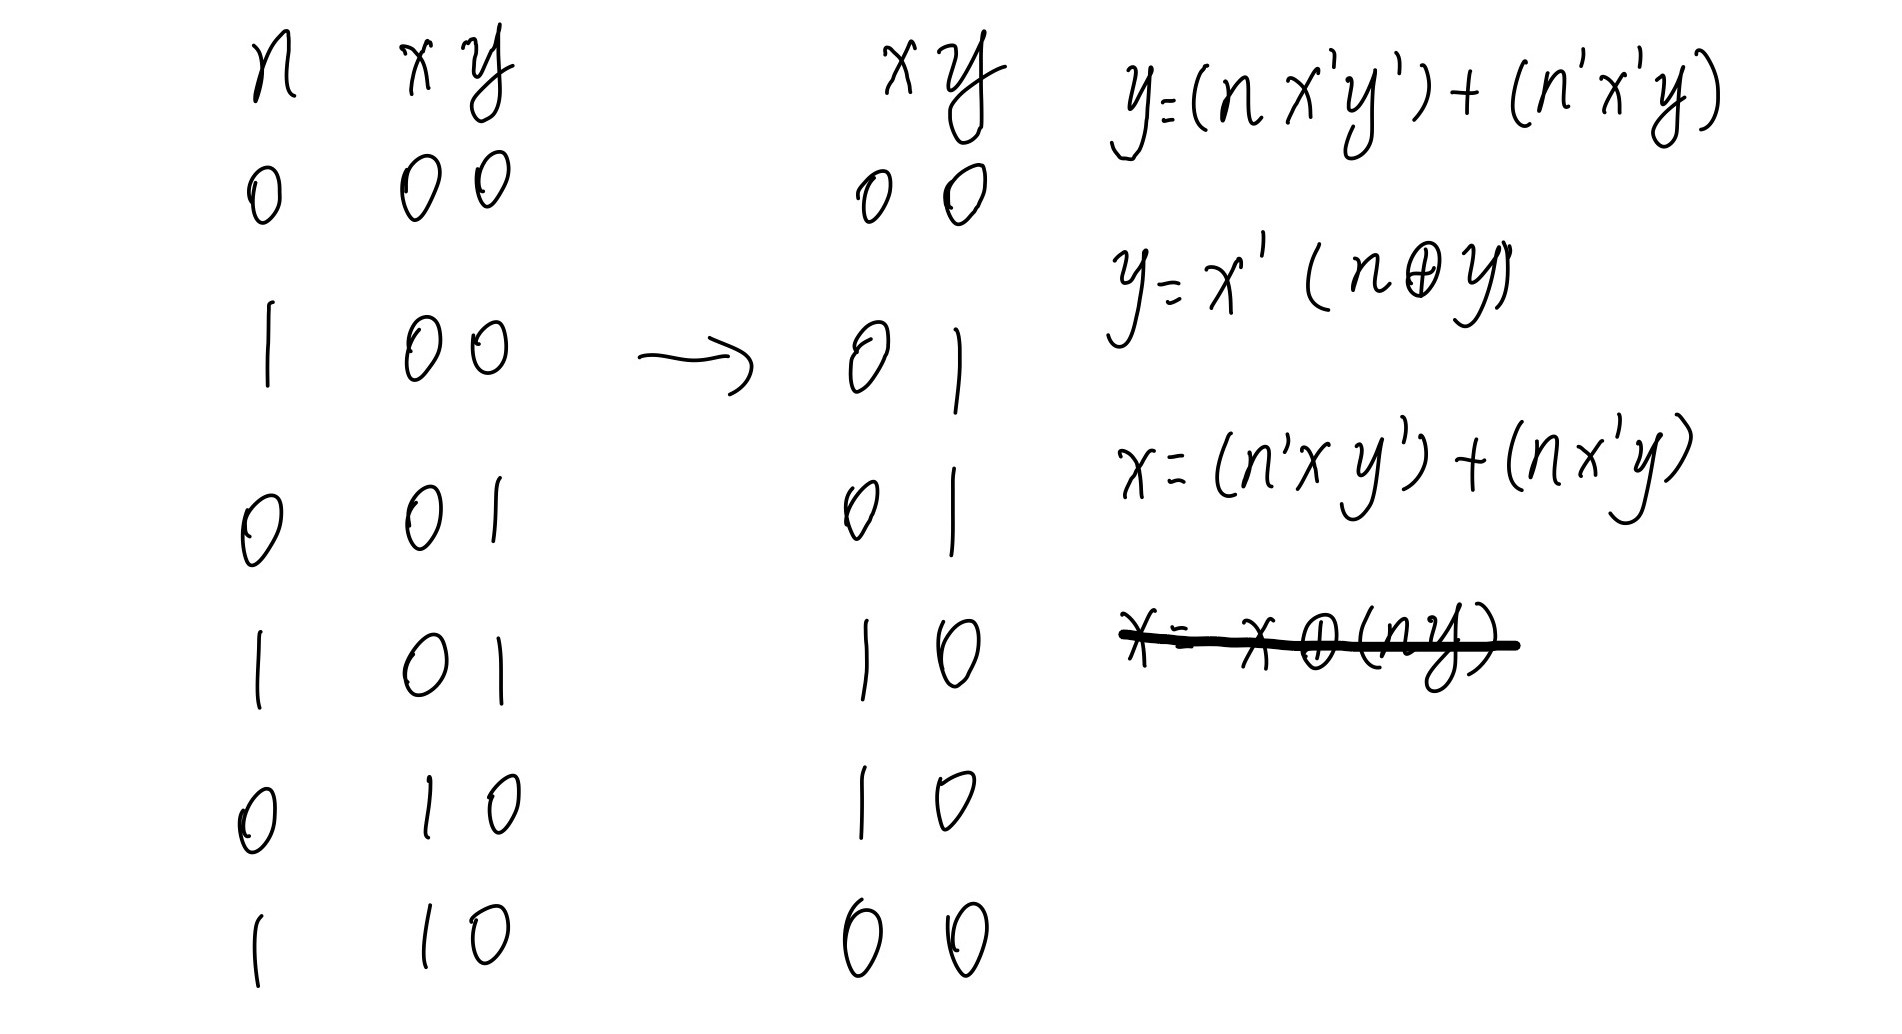 n x y x y
0 0 0 0 0
1 0 0 → 0 1
0 0 1 0 1
1 0 1 1 0
0 1 0 1 0
1 1 0 0 0
y=(n x'y')+(n'x'y)
y=x'(n⊕y)
x=(n'x y')+(n x'y)
x= x⊕(ny)